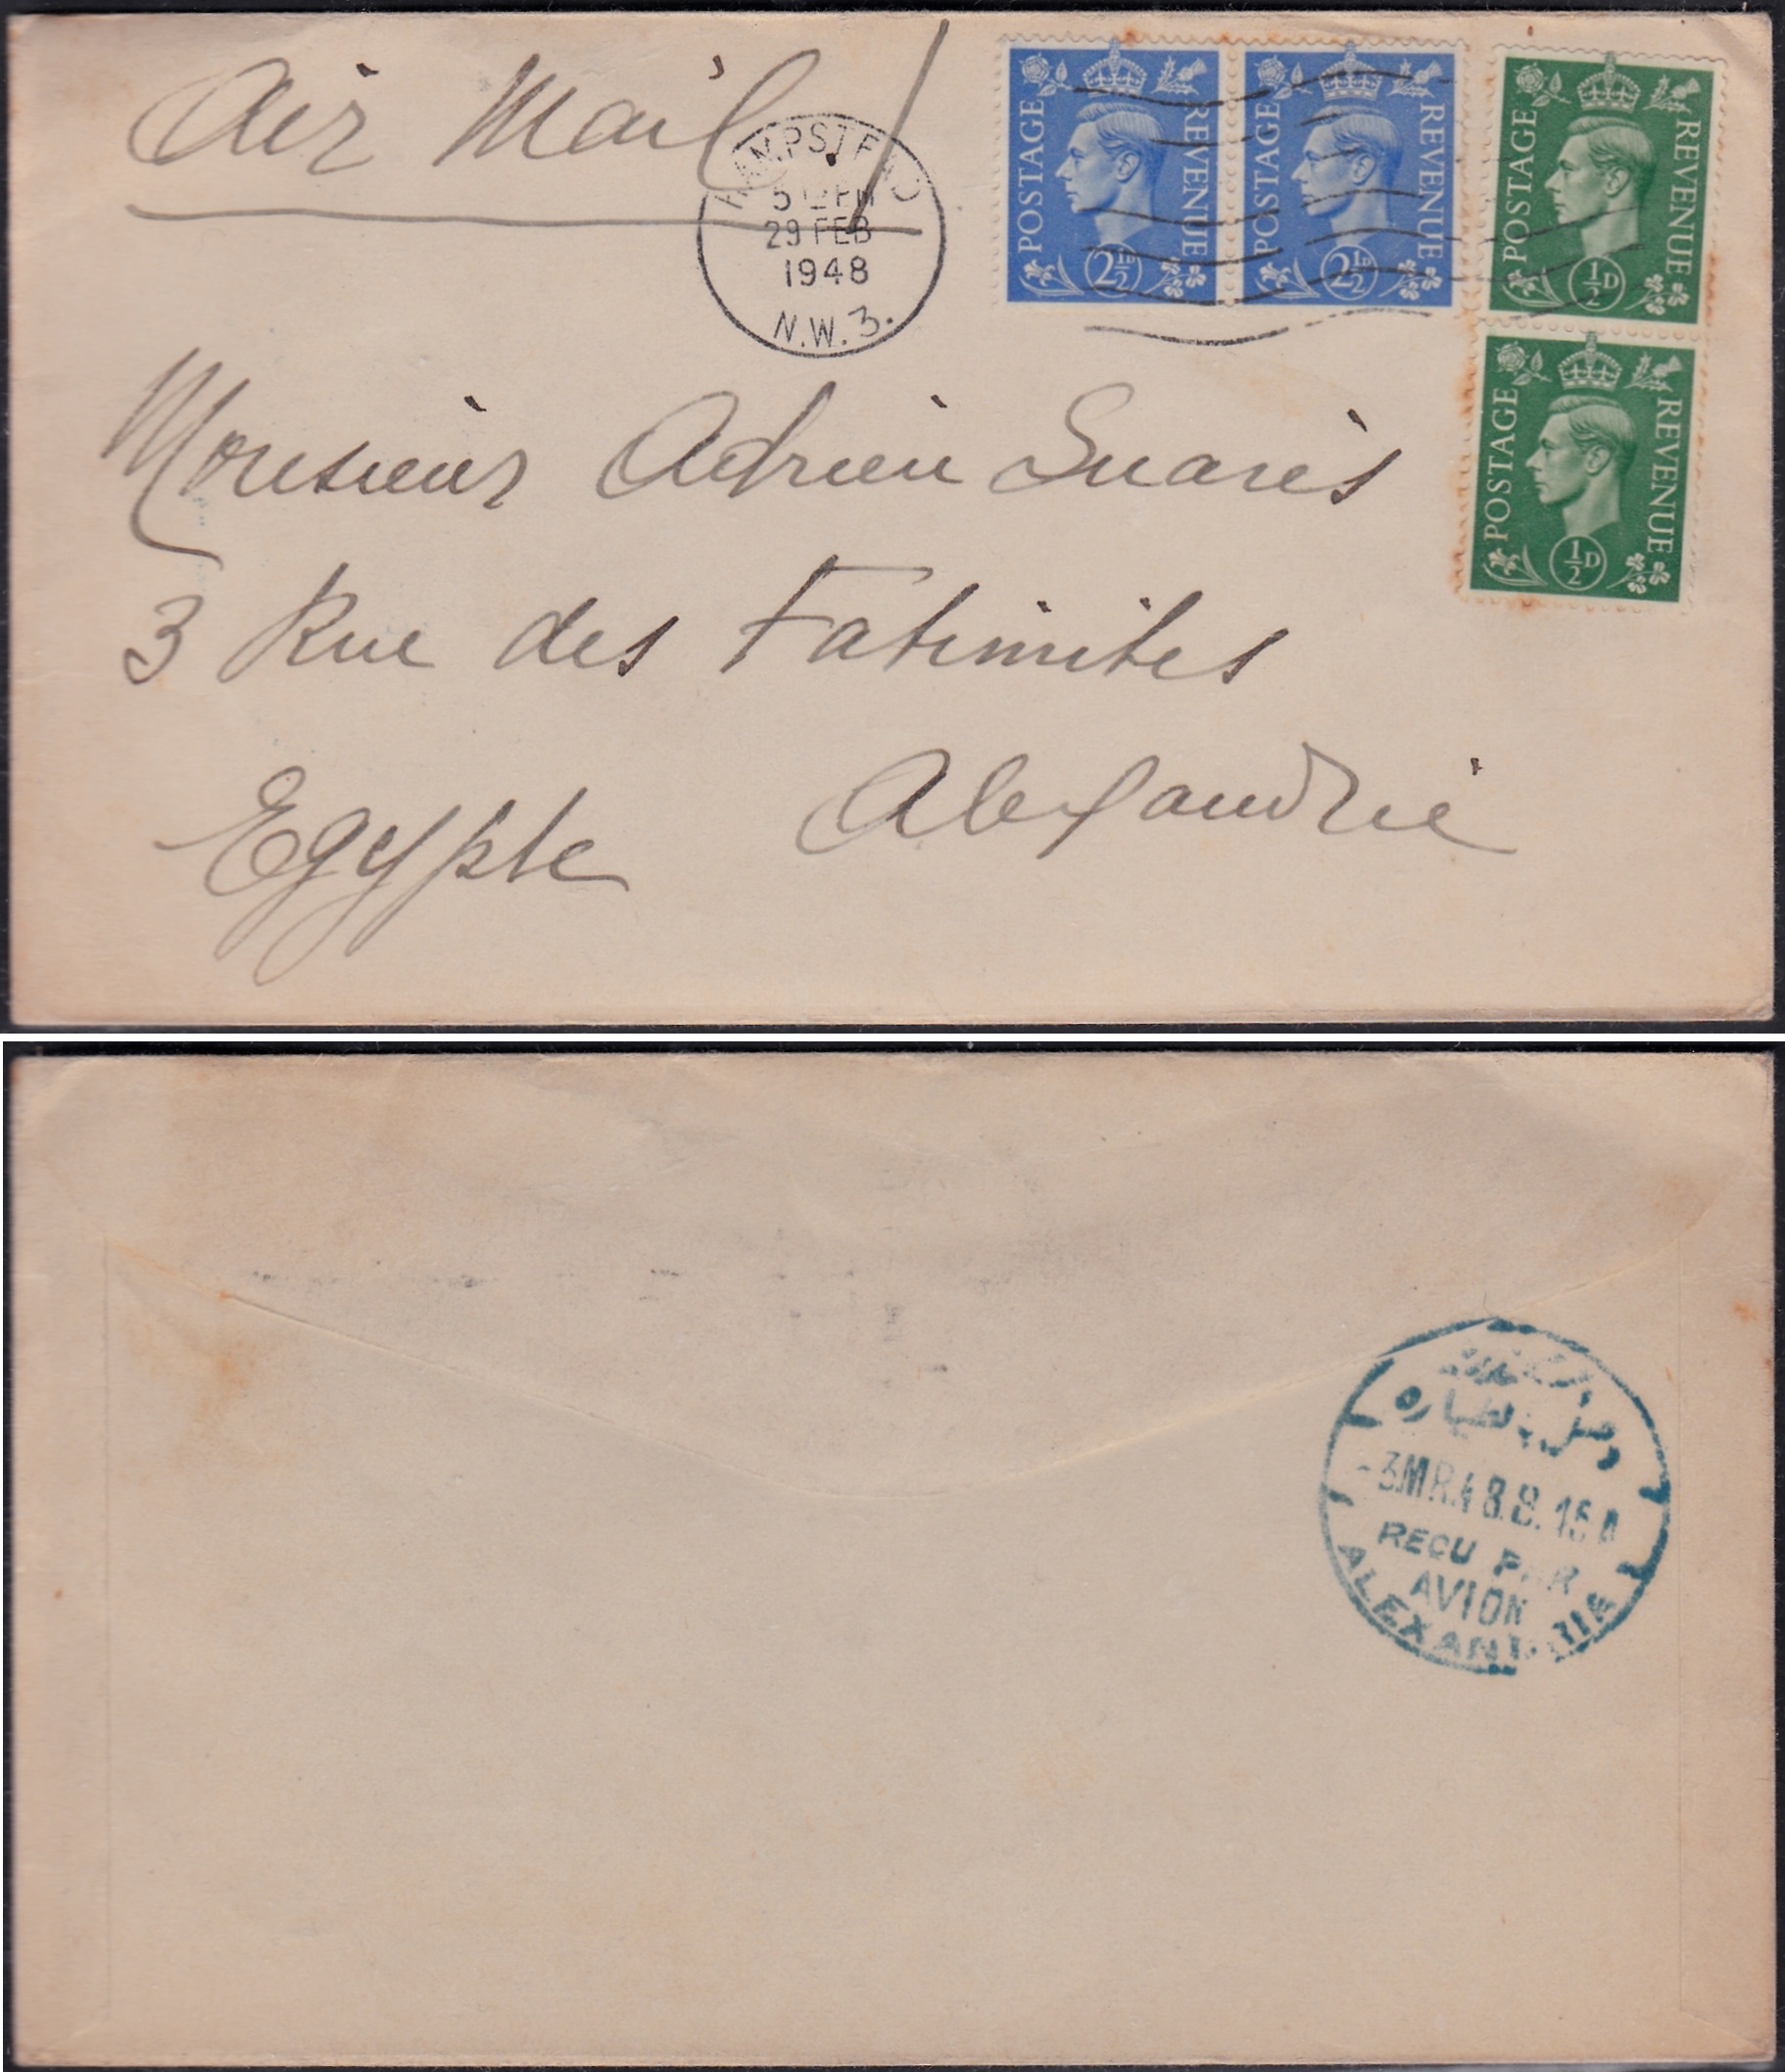 Air Mail
HAMPSTEAD
29 FEB
1948
N.W.3.
POSTAGE REVENUE
2½D
POSTAGE REVENUE
2½D
POSTAGE REVENUE
½D
POSTAGE REVENUE
½D
Monsieur Adrien Suarès
3 Rue des Fatimites
Alexandrie
Egypte
وصل بالطياره
-3 MR.48.8.15A
RECU PAR
AVION
ALEXANDRIA